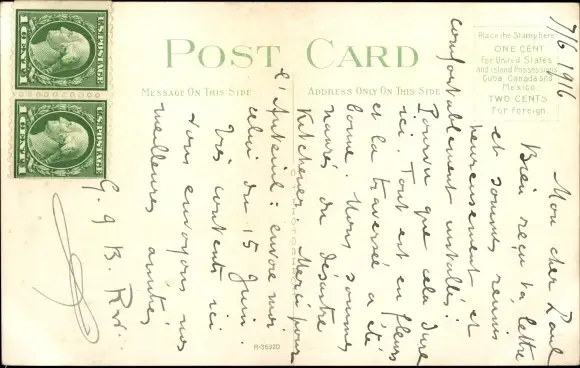 U.S. POSTAGE
1 CENT 1
U.S. POSTAGE
1 CENT 1
POST CARD
MESSAGE ON THIS SIDE
ADDRESS ONLY ON THIS SIDE
Place the Stamp here
ONE CENT
for United States
and Island Possessions
Cuba, Canada and
Mexico
TWO CENTS
For Foreign.
7/6 1916
Mon cher Paul
Bien reçu ta lettre
et sommes réunis
heureusement et
comfortablement installés.
Pourvu que cela dure
ici. Tout est en fleurs
et la traversée a été
bonne. Nous sommes
navrés du désastre
Kitchener. Merci pour
l'Auteuil: envoie moi
celui du 15 Juin.
Très contents ici
tous envoyons nos
meilleures amitiés
G. J B.
R-35520